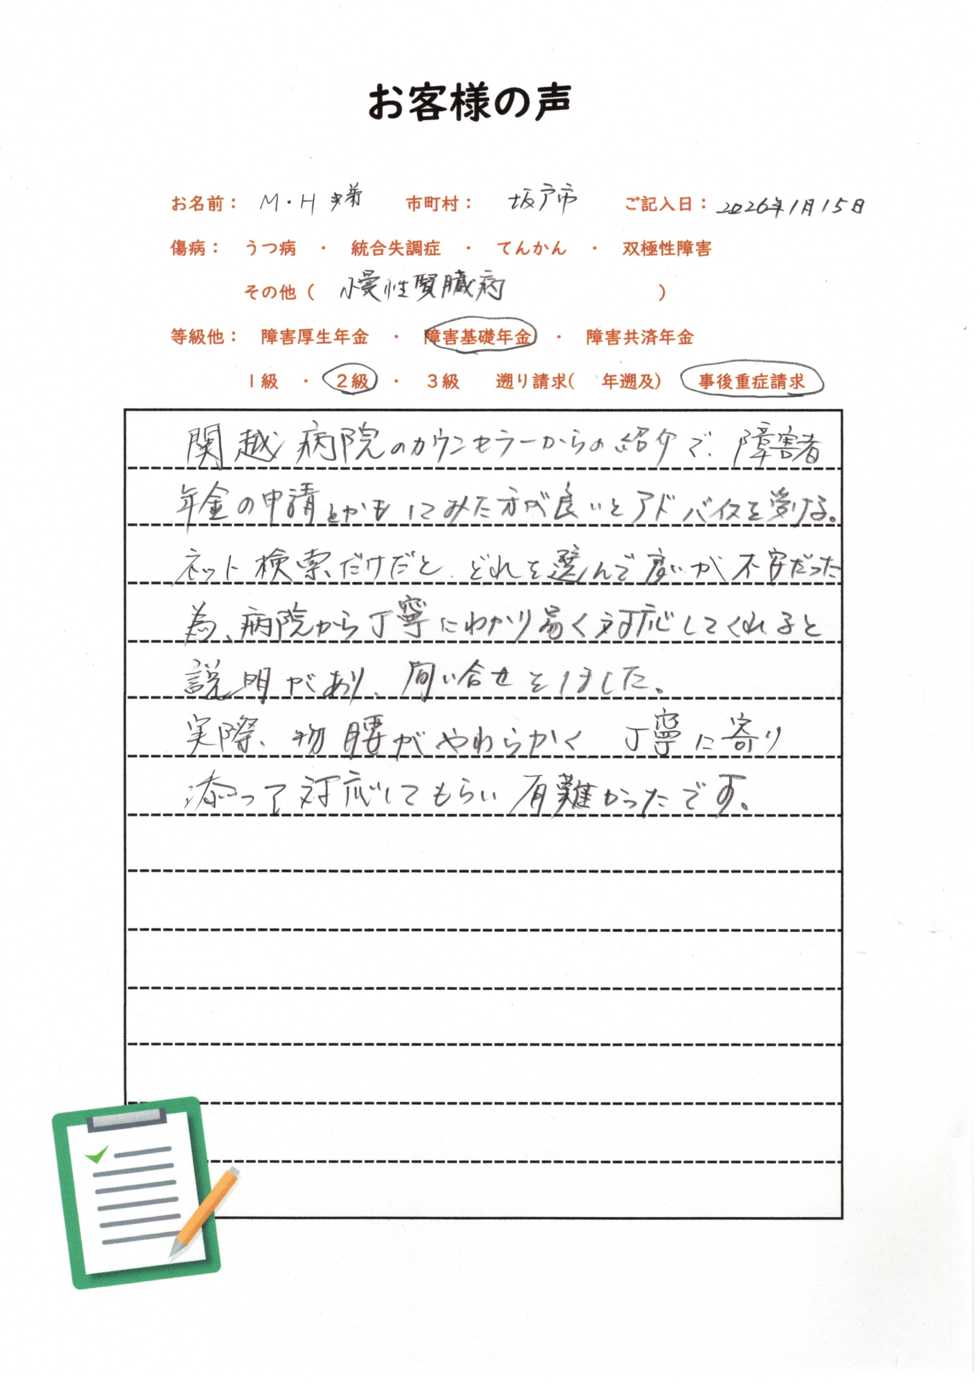 お客様の声
お名前： M・H 様 市町村： 坂戸市 ご記入日： 2026年1月15日
傷病： うつ病 ・ 統合失調症 ・ てんかん ・ 双極性障害
その他（ 慢性腎臓病 ）
等級他： 障害厚生年金 ・ 障害基礎年金 ・ 障害共済年金
1級 ・ 2級 ・ 3級 遡り請求( 年遡及) 事後重症請求
関越病院のカウンセラーからの紹介で、障害者
年金の申請とかも してみた方が良いとアドバイスを受ける。
ネット検索だけだと、どれを選んで良いか不安だった
為、病院から丁寧にわかり易く対応してくれると
説明があり、問い合せをしました。
実際、物腰がやわらかく 丁寧に寄り
添って対応してもらい有難かったです。